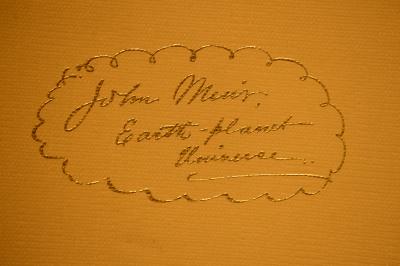 John Muir,
Earth-planet
Universe